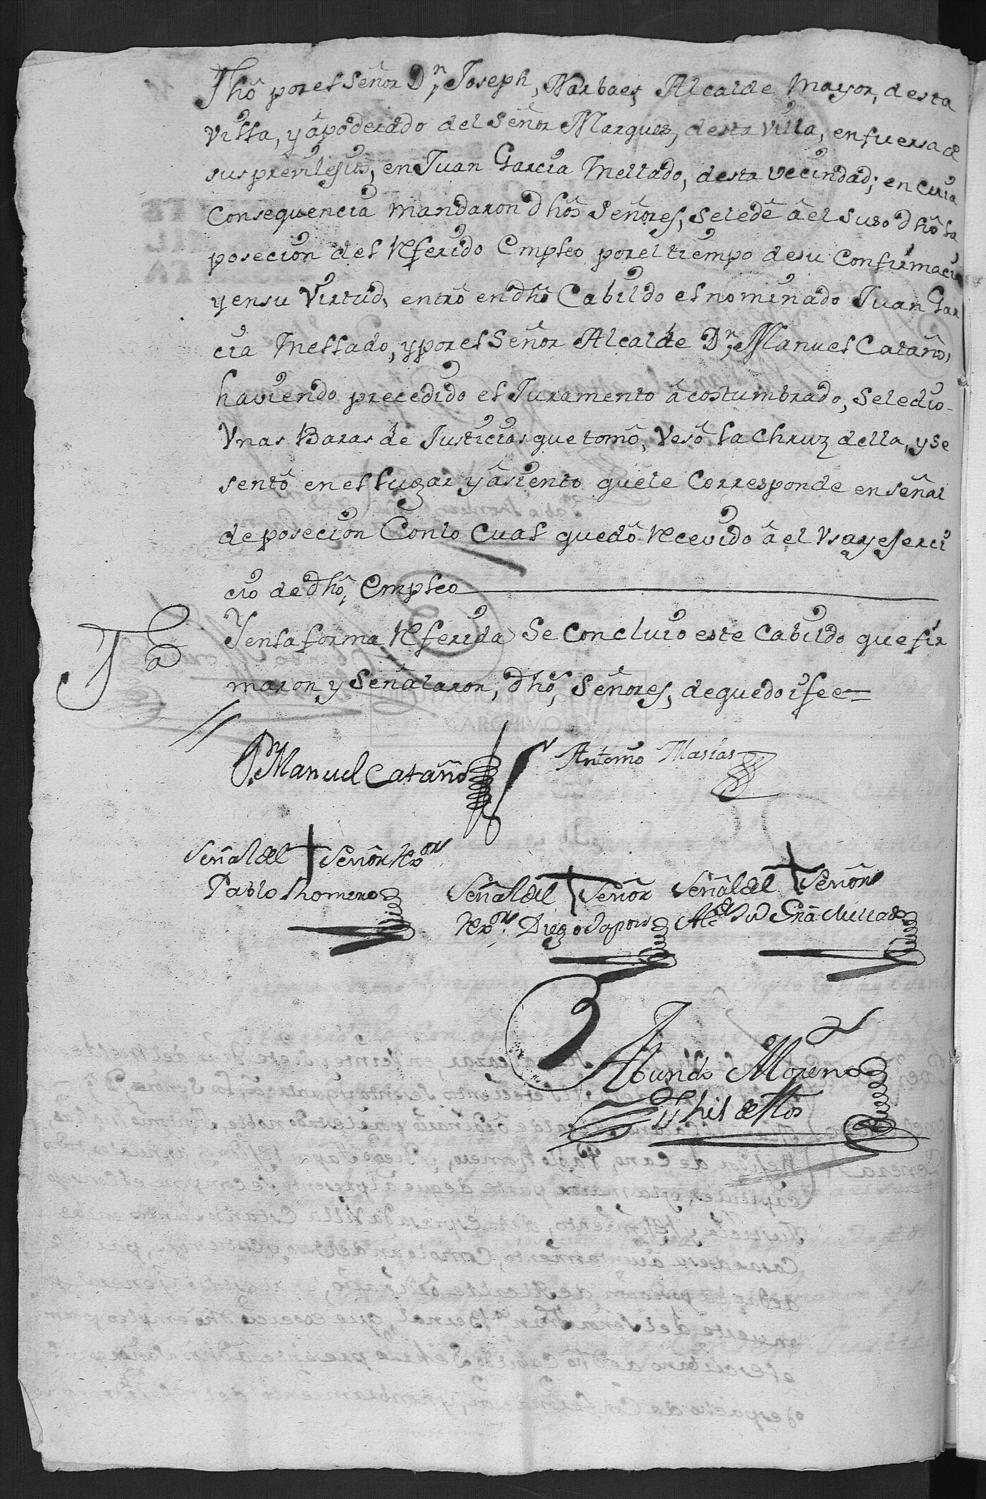 Thô por el Señor Dn, Joseph, Narbaes Alcalde Mayor, desta
Villa, y âpoderado del Señor Marques, desta Villa, enfuersa de
sus previlejios, en Juan Garcia Mellado, desta vecindad; en cuia
Consequencia mandaron dhôs Señores, seledê â el suso dhô la
posecion del Referido Empleo por el tiempo desu Confirmacio
y en su Virtud, entrô en dhô Cabildo el nominado Juan Gar
cia Mellado, y por el Señor Alcalde Dn, Manuel Cataño,
haviendo precedido el Juramento â costumbrado, Seledio-
Vnas Baras de Justicias que tomô, Vesô la Chruz della, y se
sentô en el lugar y âsiento quele Corresponde en señal
de posecion Conlo Cual quedô Recevido â el Vsa y ejerci
cio de dhô, Empleo
Y en la forma Referida Se Concluio este Cabildo que fir
maron y Señalaron, dhôs, Señores, de que doi fee=
D. Manuel Cataño
Antonio Masias
Señal del + Señor Rxor
Pablo Rhomero
Señal del + Señor
Rxor Diego
Señal del + Señor
Abundo Moreno